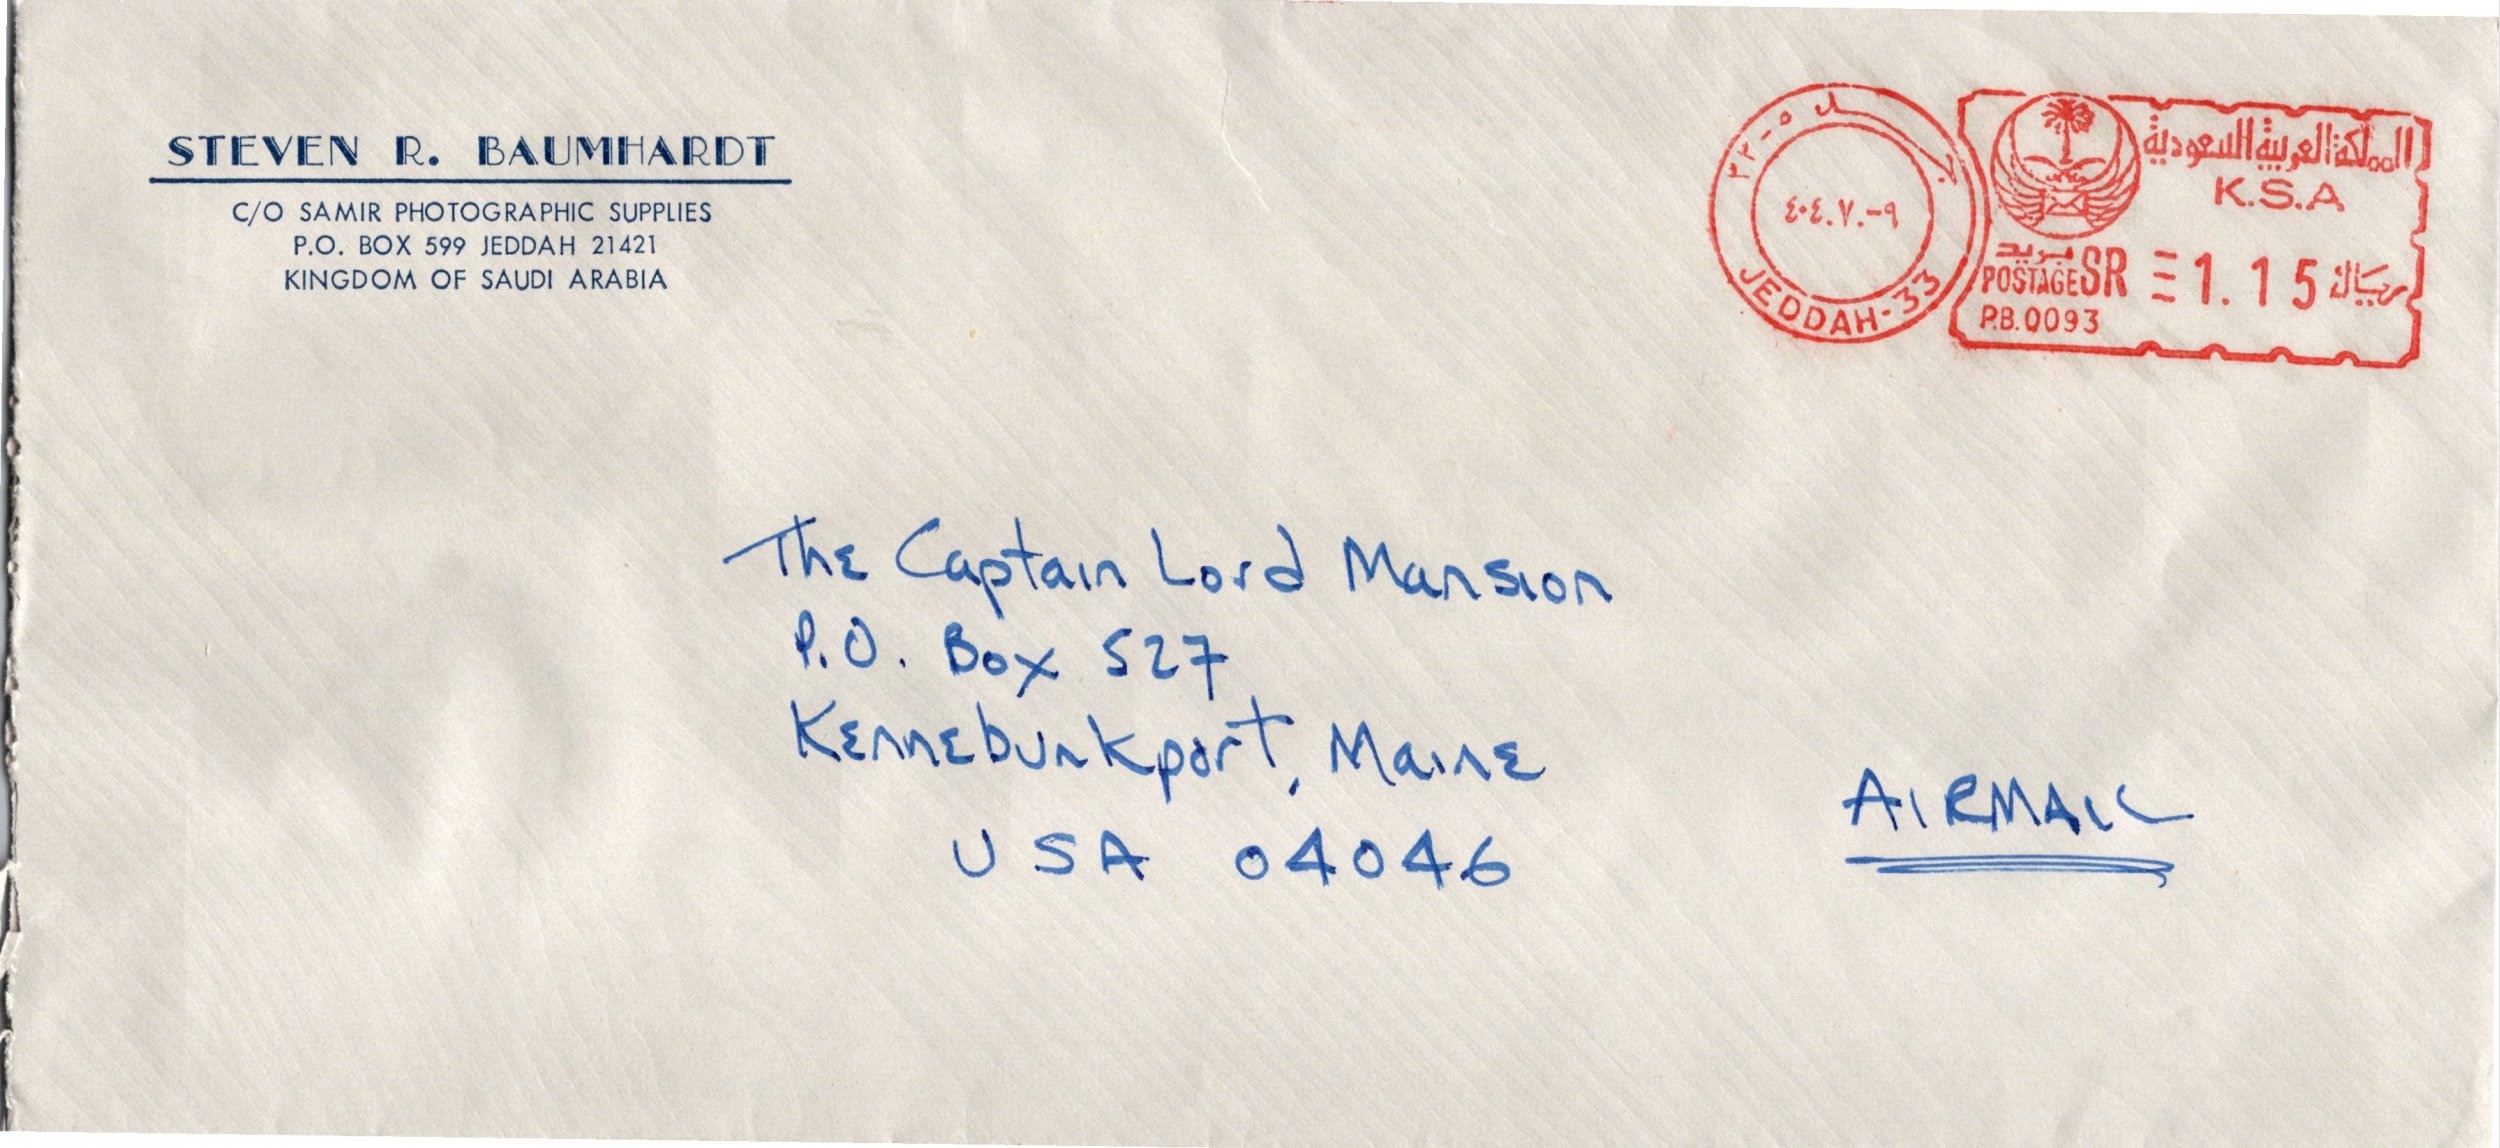 STEVEN R. BAUMHARDT
C/O SAMIR PHOTOGRAPHIC SUPPLIES
P.O. BOX 599 JEDDAH 21421
KINGDOM OF SAUDI ARABIA
٤٠٤.٧.-٩
JEDDAH-33
المملكة العربية السعودية
K.S.A
بريد
POSTAGE SR ≡1.15 ريال
P.B.0093
The Captain Lord Mansion
P.O. Box 527
Kennebunkport, Maine
USA 04046
AIRMAIL